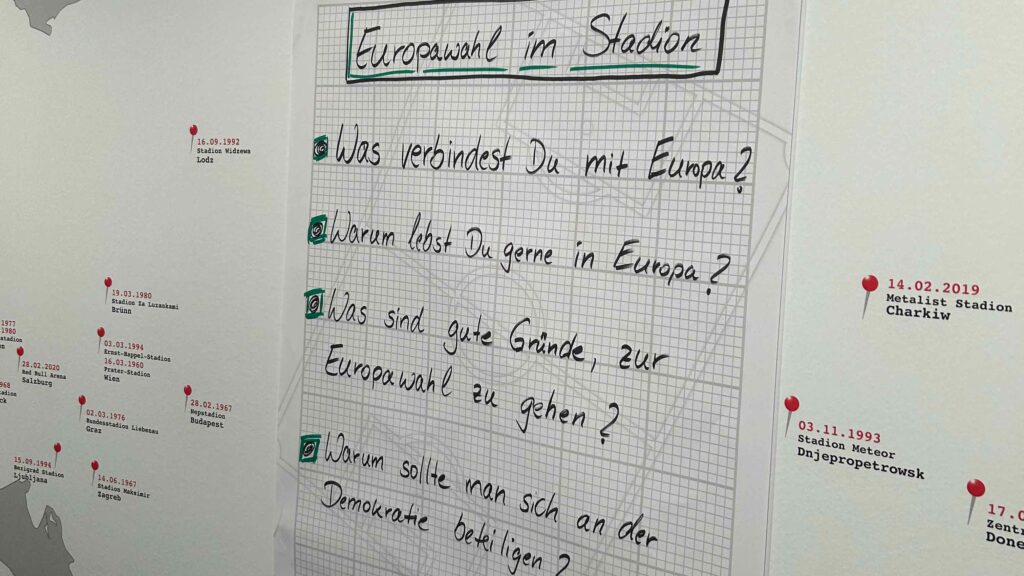 Europawahl im Stadion
Was verbindest Du mit Europa?
Warum lebst Du gerne in Europa?
Was sind gute Gründe, zur
Europawahl zu gehen?
Warum sollte man sich an der
Demokratie beteiligen?
16.09.1992
Stadion Widzewa
Lodz
19.03.1980
Stadion Za Luzankami
Brünn
1977
1980
03.03.1994
Ernst-Happel-Stadion
16.03.1960
Prater-Stadion
Wien
28.02.2020
Red Bull Arena
Salzburg
28.02.1967
Nepstadion
Budapest
02.03.1976
Bundesstadion Liebenau
Graz
15.09.1994
Bezigrad Stadion
Ljubljana
14.06.1967
Stadion Maksimir
Zagreb
14.02.2019
Metalist Stadion
Charkiw
03.11.1993
Stadion Meteor
Dnjepropetrowsk
17.0
Zentr
Done